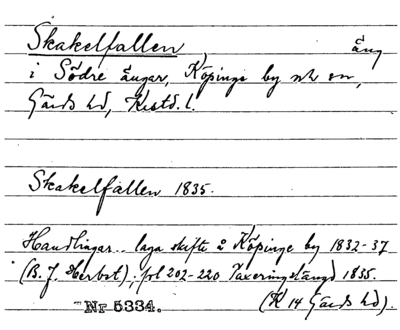 Skakelfallen äng
i Södre ängar, Köpinge by nr en,
Gärds hd, Kristd. l.
Skakelfallen 1835.
Handlingar.. laga skifte å Köpinge by 1832-37
(B. J. Herbst); fol 202-220 Taxeringslängd 1835.
(K 14 Gärds hd).
Nr 5334.